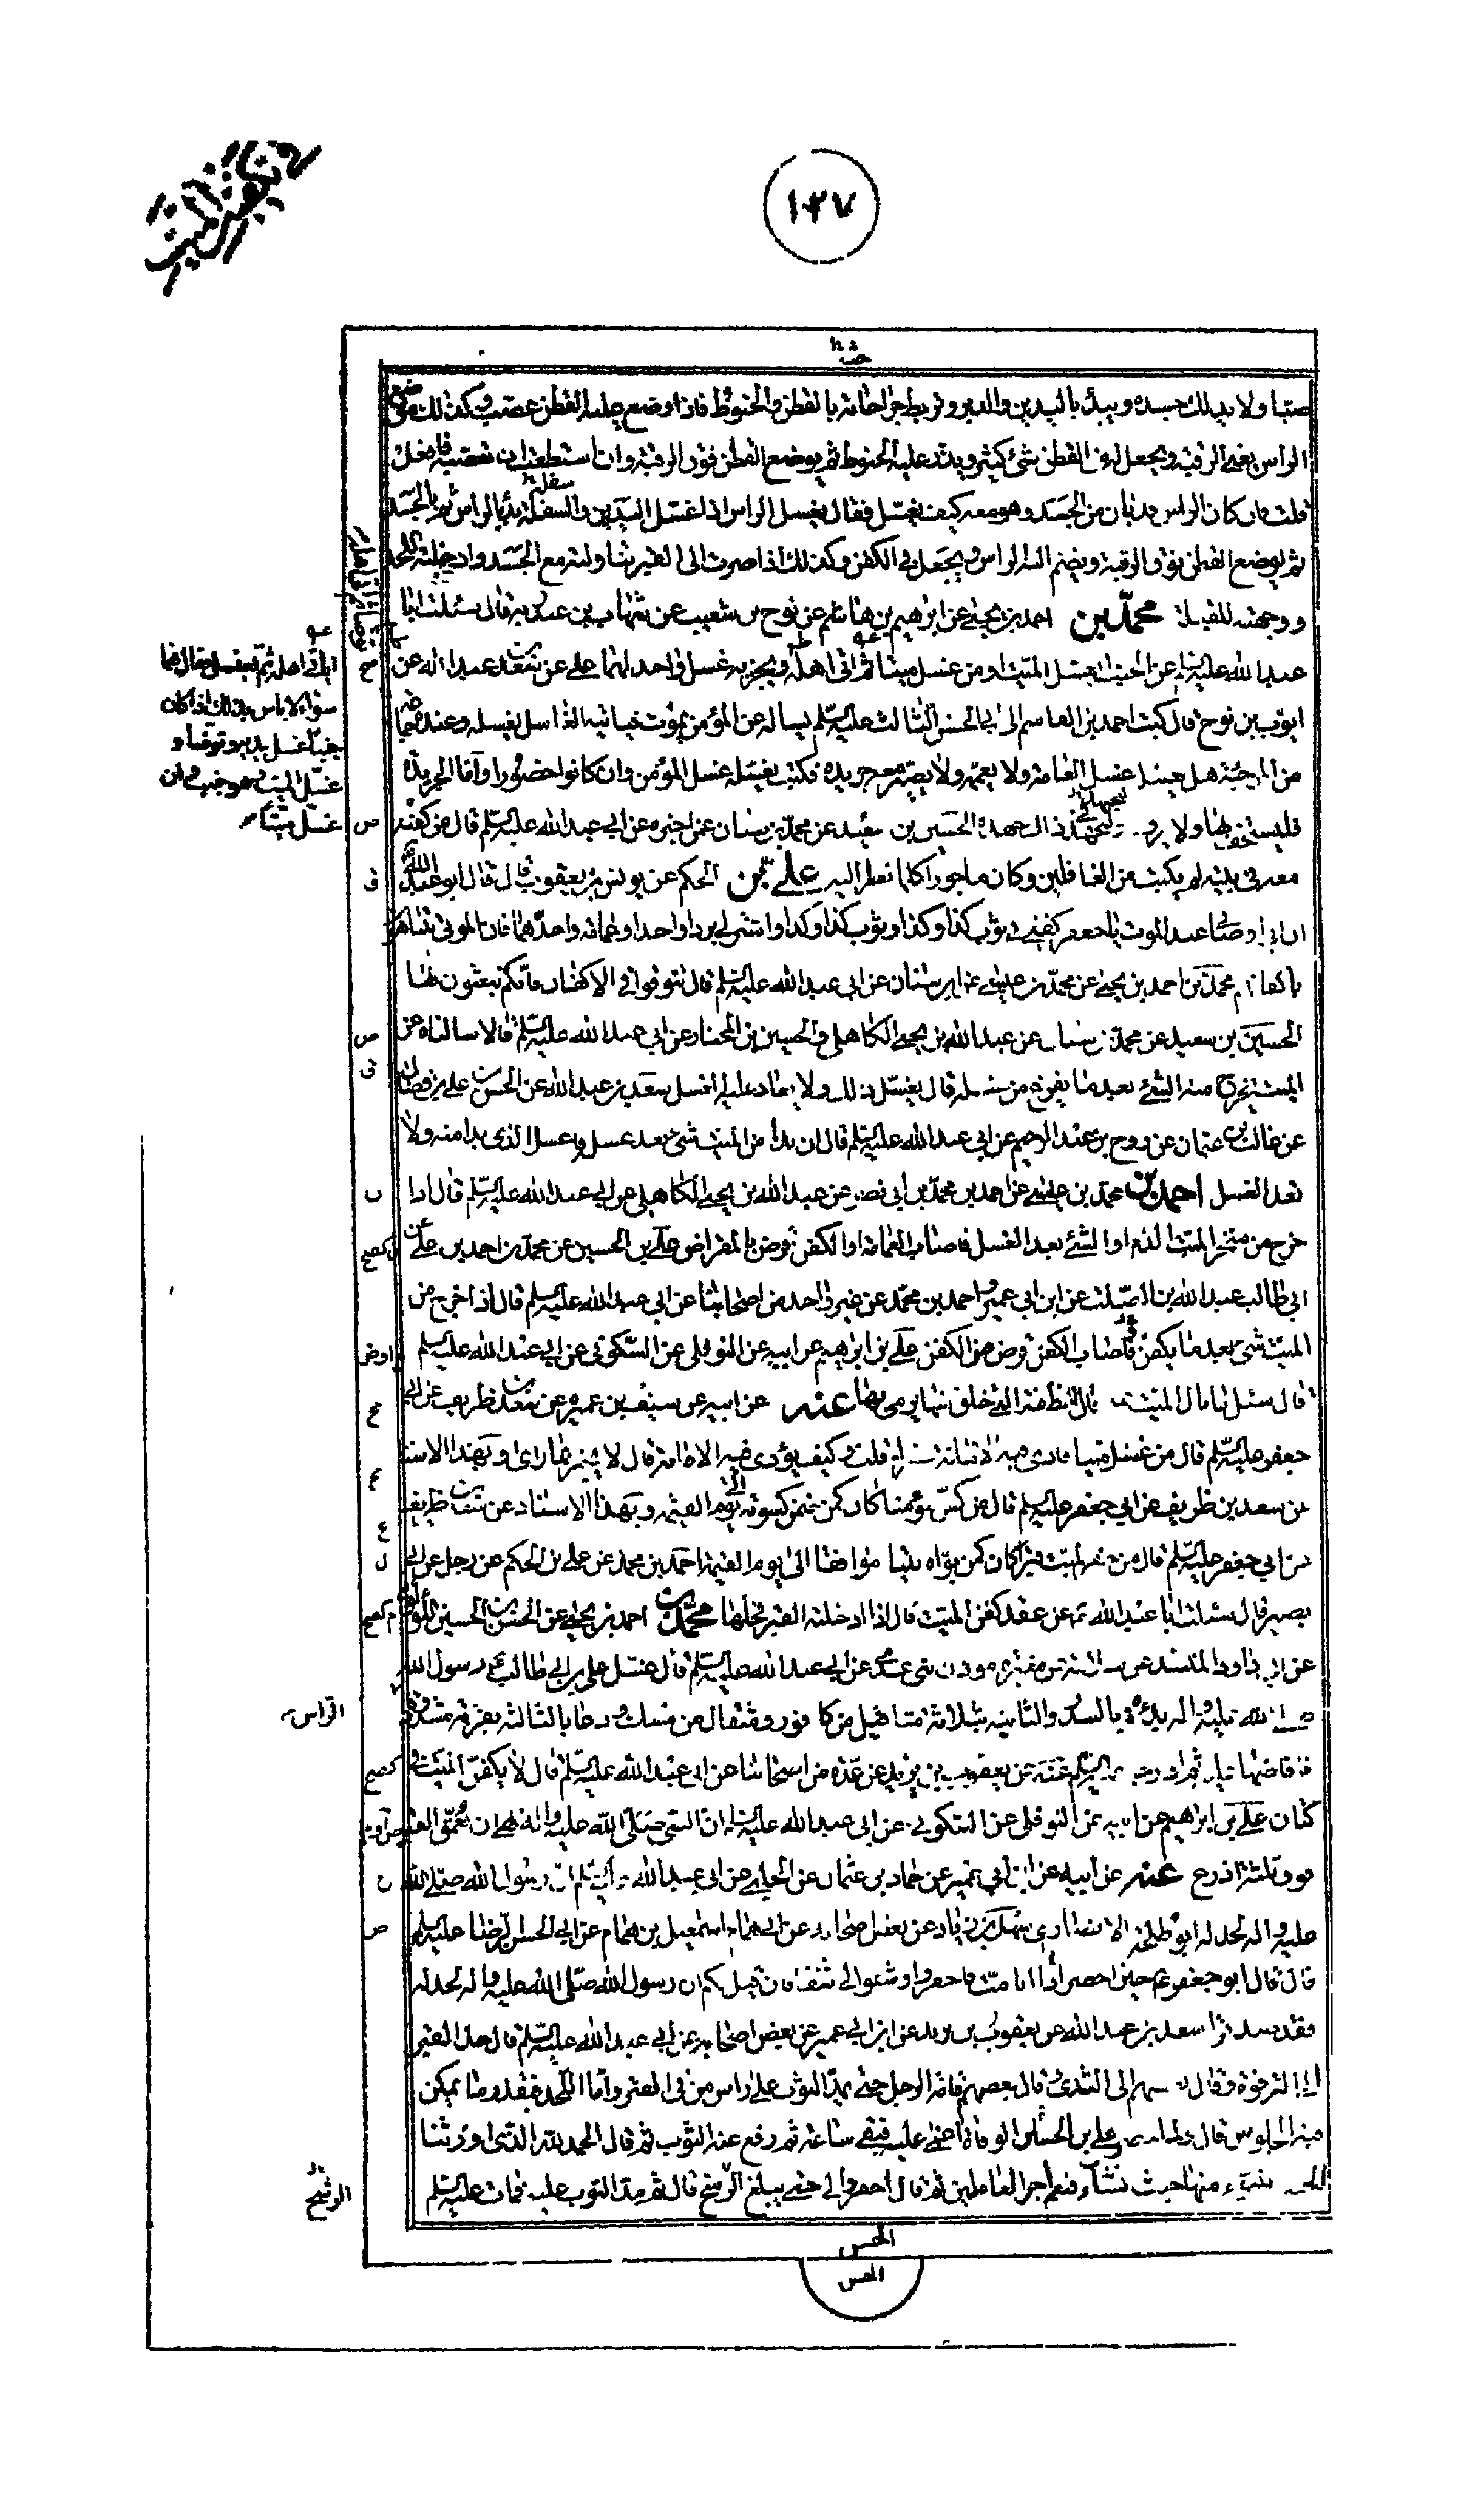 ١٣٧
صبّا ولا يدلك جسده ويبدأ باليدين والدبر وتربط جراحاته بالقطن والحنوط فاذا وضع عليه القطن عصب وكذلك موضع
الراس يعنى الرقبة ويجعل له من القطن شئ كثير ويذر عليه الحنوط ثم يوضع القطن فوق الرقبة وان استطعت ان تعصبه فافعل
قلت فان كان الراس قد بان من الجسد وهو معه كيف يغسل فقال يغسل الراس اذا غسل اليدين والسفلة بدئ بالراس ثم بالجسد
ثم يوضع القطن فوق الرقبة ويضم اليه الراس ويجعل فى الكفن وكذلك اذا صرت الى القبر تناولته مع الجسد وادخلته اللحد
ووجهته للقبلة محمد بن احمد بن يحيى عن ابراهيم بن هاشم عن نوح بن شعيب عن شهاب بن عبد ربه قال سئلت ابا
عبد الله عليه السلام عن الجنب ايغسل الميت او من غسل ميتا ثم اتى اهله ويجزيه غسل واحد لهما على عن سعد بن عبد الله عن
ايوب بن نوح قال كتب احمد بن القاسم الى ابى الحسن الثالث عليه السلم يساله عن المؤمن يموت فياتيه الغاسل يغسله وعنده جماعة
من المرجئة هل يغسله غسل العامة ولا يعممه ولا يصير معه جريدة فكتب يغسله غسل المؤمن وان كانوا حضورا واما الجريدة
فليستخف بها ولا يرونه وليجهد فى ذلك جهده الحسين بن سعيد عن محمد بن سنان عمن اخبره عن ابى عبد الله عليه السلم قال من كفنه
معه فى بيته لم يكتب من الغافلين وكان ماجورا كلما نظر اليه على بن الحكم عن يونس بن يعقوب قال قال ابو عبد الله
ان ابى اوصانى عند الموت يا جعفر كفنى فى ثوب كذا وكذا وثوب كذا وكذا واشتر لى بردا واحدا وعمامة واجدهما فان الموتى يتباهون
باكفانهم محمد بن احمد بن يحيى عن محمد بن عيسى عن ابن سنان عن ابى عبد الله عليه السلم قال تنوقوا فى الاكفان فانكم تبعثون بها
الحسين بن سعيد عن محمد بن سنان عن عبد الله بن يحيى الكاهلى والحسين بن المختار عن ابى عبد الله عليه السلم قالا سالناه عن
الميت يخرج منه الشئ بعد ما يفرغ من غسله قال يغسل ذلك ولا يعاد عليه الغسل سعد بن عبد الله عن الحسن بن على بن فضال
عن غالب بن عثمان عن روح بن عبد الرحيم عن ابى عبد الله عليه السلم قال ان بدا من الميت شئ بعد غسله فاغسل الذى بدا منه ولا
تعد الغسل احمد بن محمد بن عيسى عن احمد بن محمد بن ابى نصر عن عبد الله بن يحيى الكاهلى عن ابى عبد الله عليه السلم قال اذا
خرج من منخر الميت الدم او الشئ بعد الغسل فاصاب العمامة او الكفن قرض بالمقراض على بن الحسين عن محمد بن احمد بن على عن
ابى طالب عبد الله بن الصلت عن ابن ابى عمير واحمد بن محمد عن غير واحد من اصحابنا عن ابى عبد الله عليه السلم قال اذا خرج من
الميت شئ بعد ما يكفن فاصاب الكفن قرض من الكفن على بن ابراهيم عن ابيه عن النوفلى عن السكونى عن ابى عبد الله عليه السلم
قال سئل ما بال الميت يمنى قال النطفة التى خلق منها يرمى بها عنه عن ابيه عن سيف بن عميرة عن سعد بن طريف عن ابى
جعفر عليه السلم قال من غسل ميتا فادى فيه الامانة غفر له قلت وكيف يؤدى فيه الامانة قال لا يخبر بما راى وبهذا الاسناد
عن سعد بن ظريف عن ابى جعفر عليه السلم قال من كسى مؤمنا كان كمن ضمن كسوته الى يوم القيمة وبهذا الاسناد عن سعد بن ظريف
عن ابى جعفر عليه السلم قال من حفر لميت قبرا كان كمن بواه بيتا موافقا الى يوم القيمة احمد بن محمد عن على بن الحكم عن رجل عن ابى
بصير قال سئلت ابا عبد الله ع عن عقد كفن الميت قال اذا ادخلته القبر فحلها محمد بن احمد بن يحيى عن الحسن بن الحسين اللؤلؤى
عن ابى داود المنشد عن عن ابى عبد الله عليه السلم قال غسل على بن ابى طالب ع رسول الله
صلى الله عليه واله بدءه بالسدر والثانية بثلاثة مثاقيل من كافور ومثقال من مسك ودعا بالثالثة بقربة مشدودة
فافاضها عليه ثم ادرجه عليه السلم عنه عن يعقوب بن يزيد عن عدة من اصحابنا عن ابى عبد الله عليه السلم قال لا يكفن الميت فى
كتان على بن ابراهيم عن ابيه عن النوفلى عن السكونى عن ابى عبد الله عليه السلم ان النبى صلى الله عليه واله نهى ان يعمق القبر
فوق ثلثة اذرع عنه عن ابيه عن ابن ابى عمير عن حماد بن عثمان عن الحلبى عن ابى عبد الله عليه السلم ان رسول الله صلى الله
عليه واله لحد له ابو طلحة الانصارى سهل بن زياد عن بعض اصحابه عن ابى همام اسمعيل بن همام عن ابى الحسن الرضا عليه السلم
قال قال ابو جعفر ع حين احضر اذا انا مت فاحفروا وشقوا لى شقا فان قيل لكم ان رسول الله صلى الله عليه واله لحد له
فقد صدقوا سعد بن عبد الله عن يعقوب بن يزيد عن ابن ابى عمير عن بعض اصحابه عن ابى عبد الله عليه السلم قال حد القبر
الى الترقوة وقال بعضهم الى الثدى وقال بعضهم قامة الرجل حتى يمد الثوب على راس من فى القبر واما اللحد فبقدر ما يمكن
فيه الجلوس قال ولما حضر على بن الحسين الوفاة اغمى عليه فبقى ساعة ثم رفع عنه الثوب ثم قال الحمد لله الذى اورثنا
الجنة نتبوء منها حيث نشاء فنعم اجر العاملين ثم قال احفروا لى حتى يبلغ الرشح قال ثم مد الثوب عليه فمات عليه السلم
اياتى اهله ثم يغتسل فقال هما
سواء لا باس بذلك اذا كان
جنبا غسل يديه وتوضا و
غسل الميت وهو جنب وان
غسل ميتا